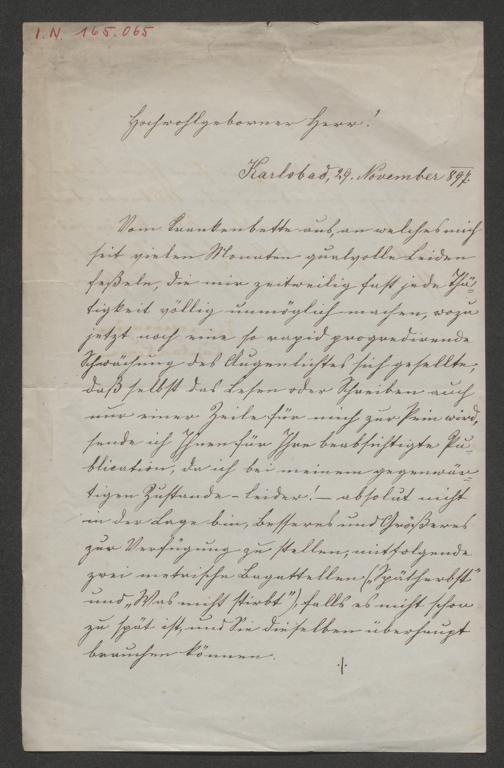 I.N. 165.065
Hochwohlgeborner Herr!
Karlsbad, 29. November 897.
Vom Krankenbette aus, an welches mich
seit vielen Monaten qualvolle Leiden
feßeln, die mir zeitweilig fast jede Thä-
tigkeit völlig unmöglich machen, wozu
jetzt noch eine so rapid progredirende
Schwächung des Augenlichtes sich gesellte,
daß selbst das Lesen oder Schreiben auch
nur einer Zeile für mich zur Pein wird,
sende ich Ihnen für Ihre beabsichtigte Pu-
blication, da ich bei meinem gegenwär-
tigen Zustande – leider! – absolut nicht
in der Lage bin, Besseres und Größeres
zur Verfügung zu stellen, mitfolgende
zwei metrische Bagattellen („Spätherbst"
und „Was nicht stirbt"), falls es nicht schon
zu spät ist, und Sie dieselben überhaupt
brauchen können. ./.